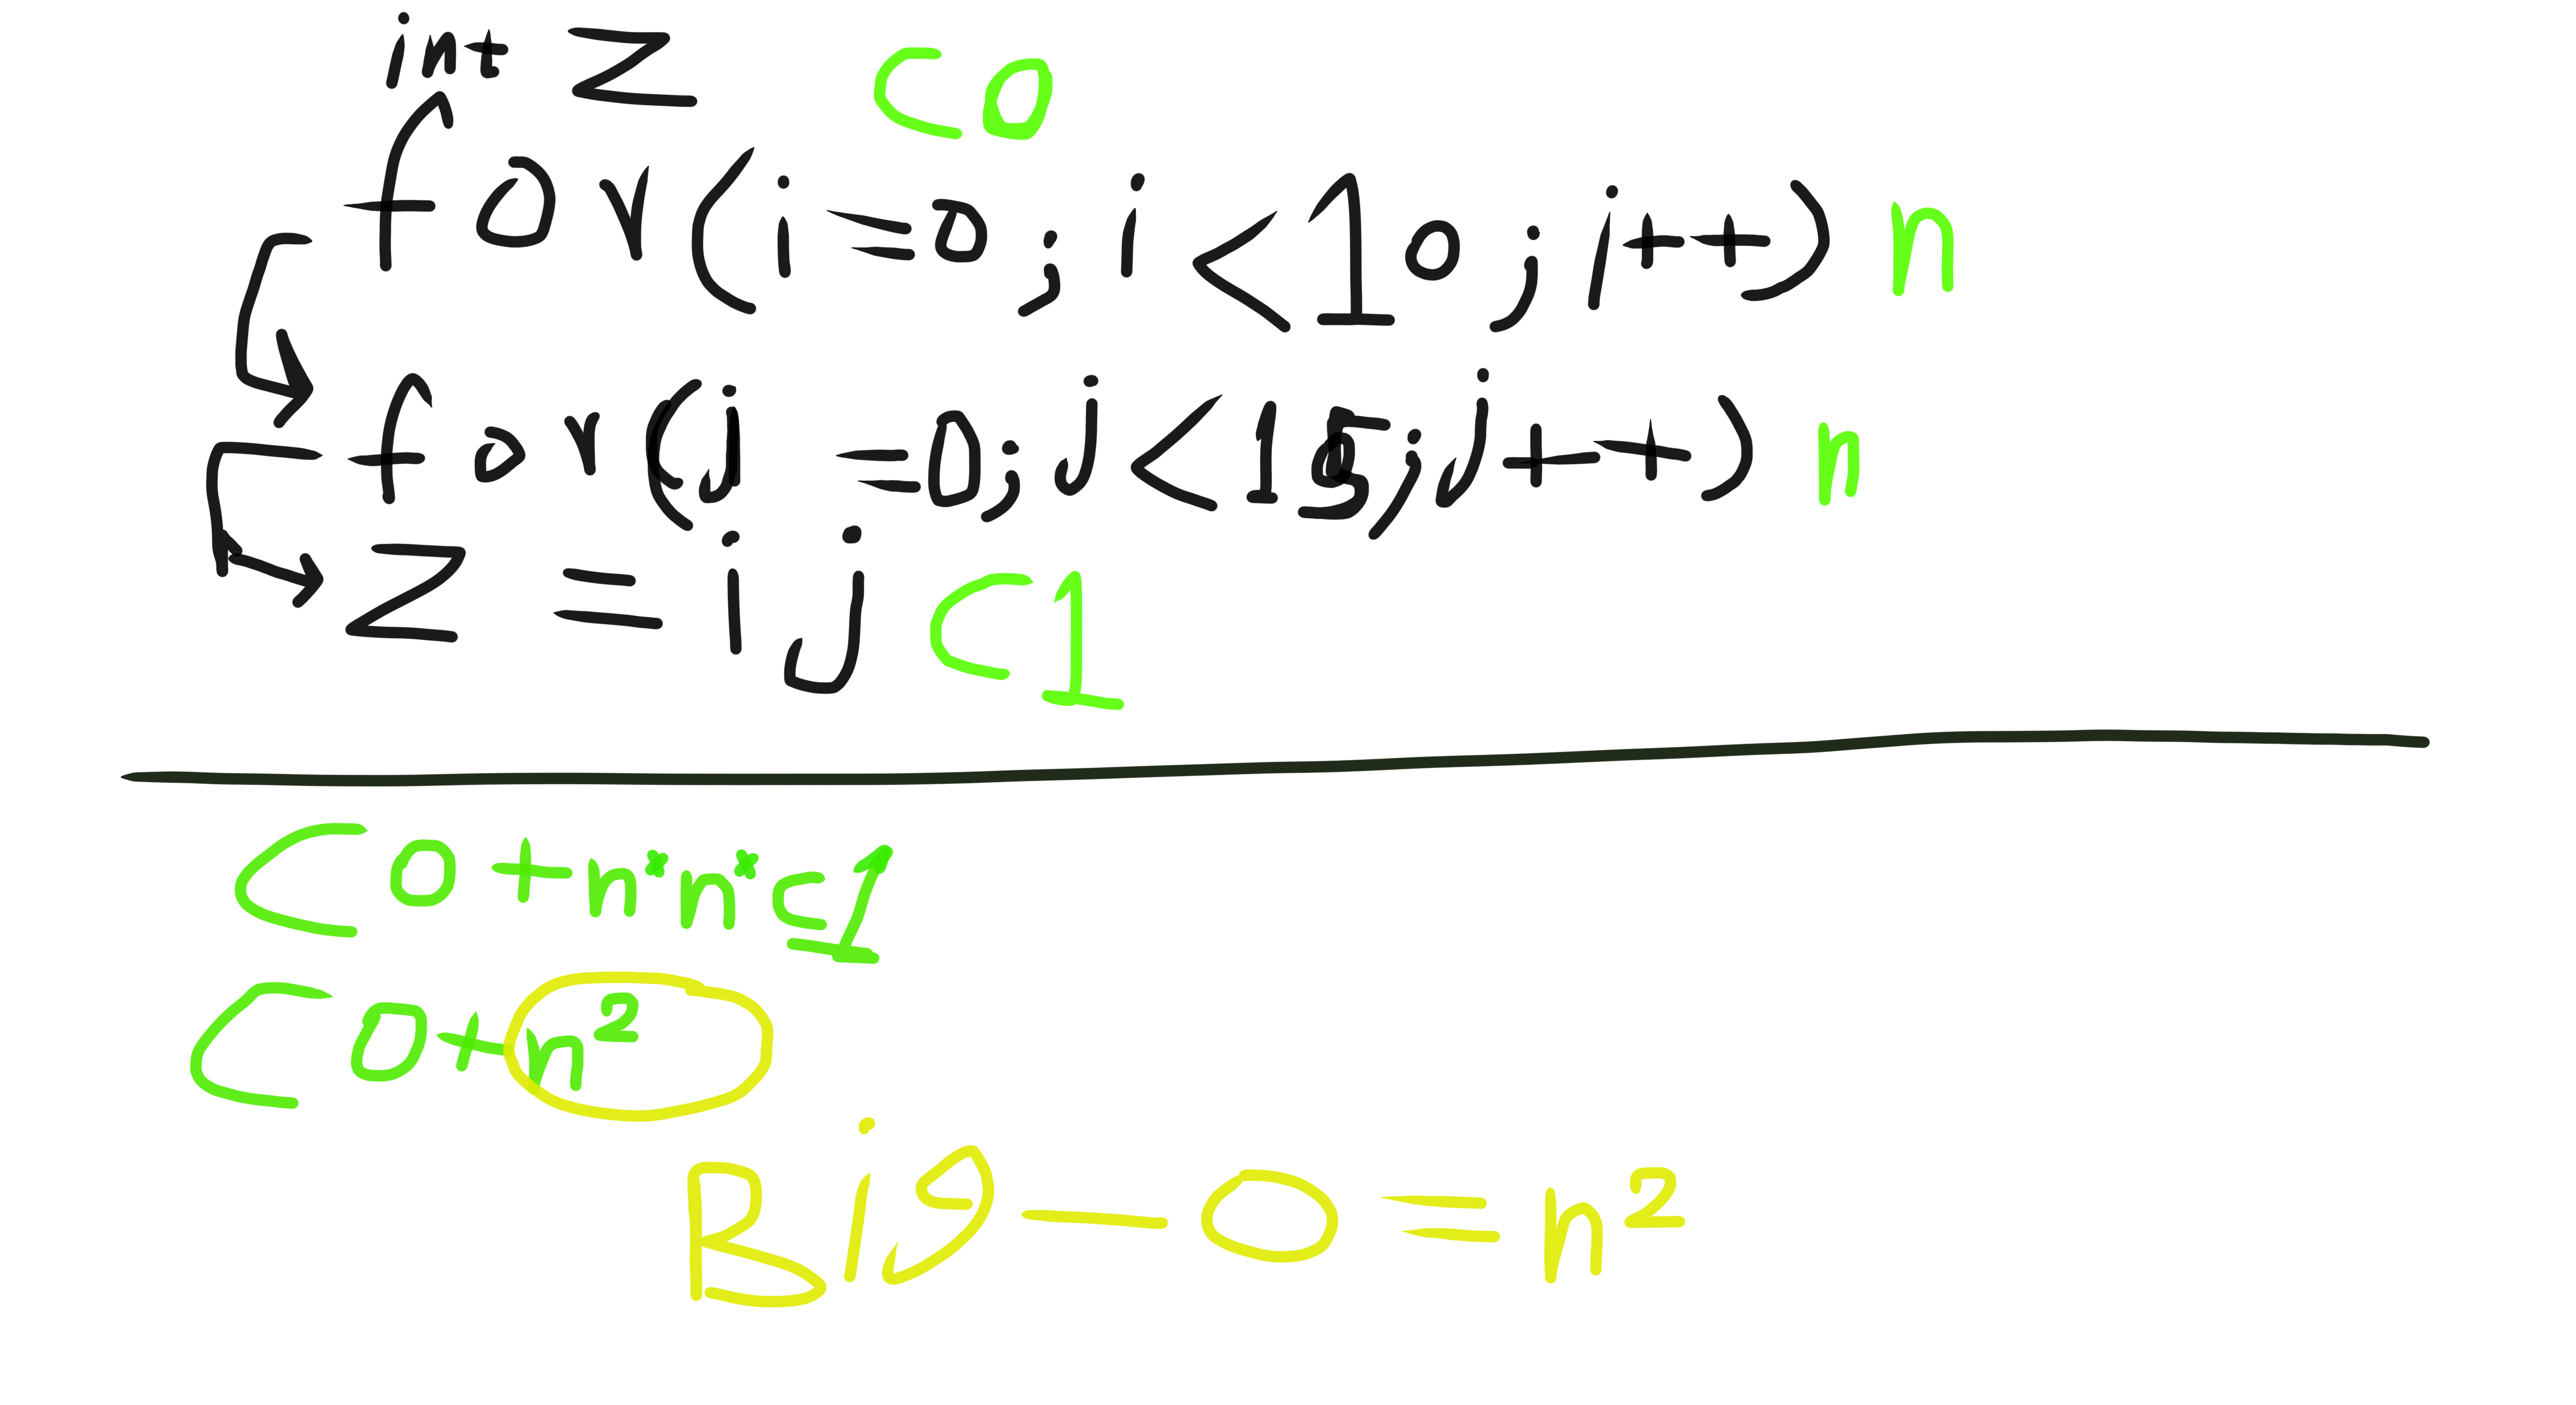 int Z C0
for(i=0; i<10; i++) n
for(j=0; j<15; j++) n
Z = i j C1
C0+n*n*c1
C0+n²
Big-O=n²